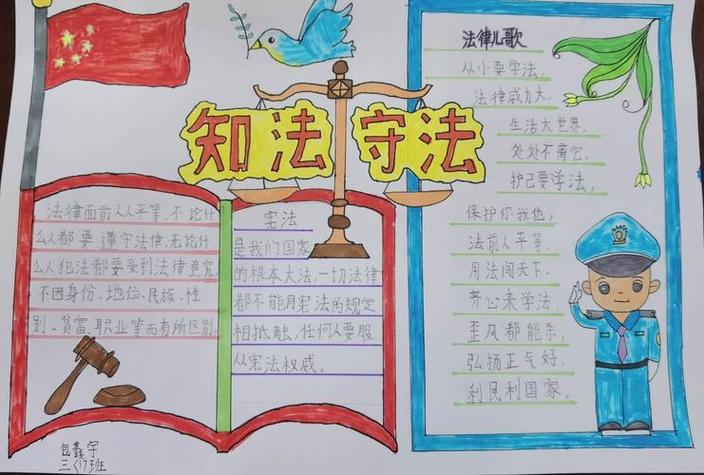 知法守法
法律面前人人平等,不论什
么人都要遵守法律,无论什
么人犯法都要受到法律追究,
不因身份、地位、民族、性
别、贫富、职业等而有所区别。
宪法
是我们国家
的根本大法,一切法律
都不能用宪法的规定
相抵触,任何人要服
从宪法权威。
法律儿歌
从小要学法,
法律威力大,
生活大世界,
处处不离它,
护己要学法,
保护你我他,
法前人平等,
用法闯天下。
齐心来学法,
歪风都能杀,
弘扬正气好,
利民利国家。
包鑫宇
三〈17〉班